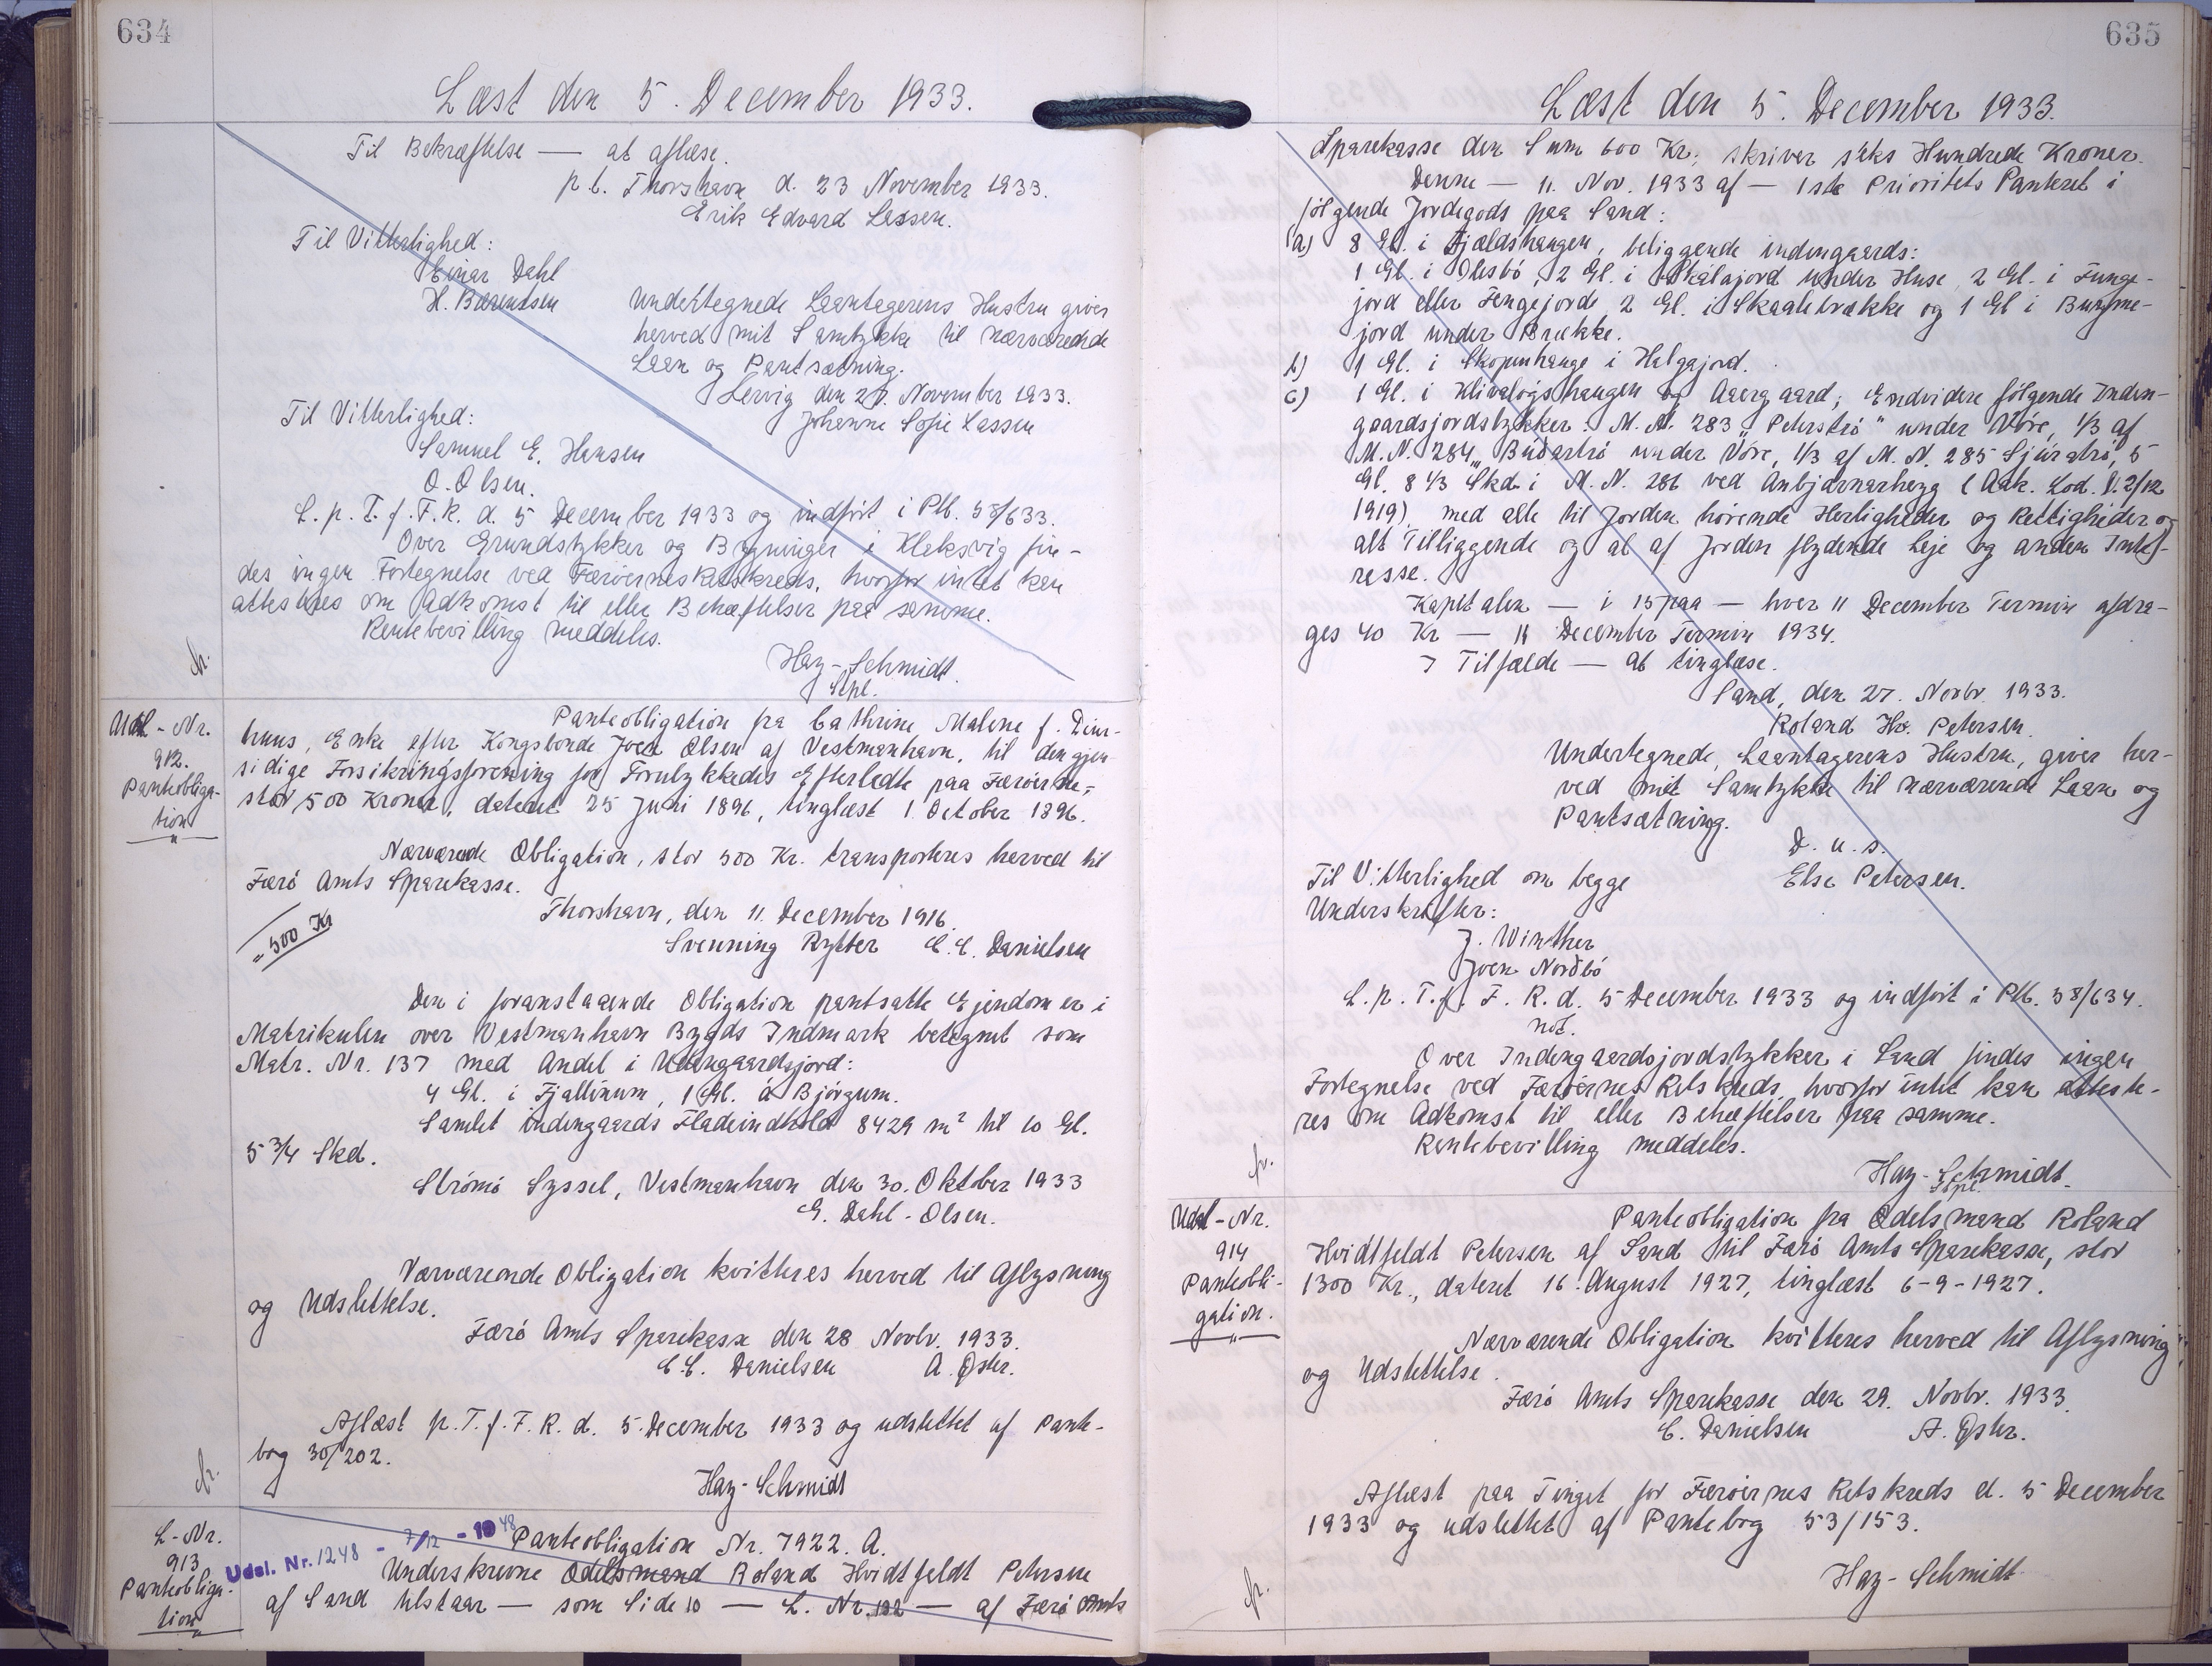 634
Læst den 5. December 1933.
Til Bekræftelse — at aflæse.
p.t. Thorshavn d. 23 November 1933.
Erik Edvard Lassen.
Til Vitterlighed:
Einar Dahl
H. Barentsen
Undertegnede Laantagerens Hustru giver
herved mit Samtykke til nærværende
Laan og Pantsætning.
Lervig den 27. November 1933.
Johanne Sofie Lassen
Til Vitterlighed:
Samuel E. Hansen
O. Olsen.
L. p. T. f. F. R. d. 5 December 1933 og indført i Ptb. 58/633.
Over Grundstykker og Bygninger i Klaksvig fin-
des ingen Fortegnelse ved Færøernes Retskreds, hvorfor intet kan
attesteres om Adkomst til eller Behæftelser paa samme.
Rentebevilling meddeles.
Hay-Schmidt.
Stpl.
Udsl-Nr.
912.
Panteobliga-
tion
Panteobligation fra Cathrine Malene f. Diur-
huus, Enke efter Kongsbonde Joen Olsen af Vestmanhavn, til den gjen-
sidige Forsikringsforening for Forulykkedes Efterladte paa Færøerne,
stor 500 Kroner, dateret 25 Juni 1896, tinglæst 1. October 1896.
Nærværende Obligation, stor 500 Kr. transporteres herved til
Færø Amts Sparekasse.
Thorshavn, den 11. December 1916.
"500 Kr
Svenning Rytter C.C. Danielsen
Den i foranstaaende Obligation pantsatte Ejendom er i
Matrikulen over Vestmanhavn Bygds Indmark betegnet som
Matr. Nr. 137 med Andel i Udengaardsjord:
4 Gl. i Fjallinum, 1 Gl. á Bjørgum.
Samlet indengaards Fladeindhold 8429 m² til 10 Gl.
5 3/4 Skd.
Strømø Syssel, Vestmanhavn den 30. Oktober 1933
G. Dahl-Olsen.
Nærværende Obligation kvitteres herved til Aflysning
og Udslettelse.
Færø Amts Sparekasse den 28 Novbr. 1933.
C.C. Danielsen A. Øster.
Aflæst p. T. f. F. R. d. 5. December 1933 og udslettet af Pante-
bog 30/202.
Hay-Schmidt
L-Nr.
913
Panteobliga-
tion
Udsl. Nr. 1248 - 7/12 - 1948
Panteobligation Nr. 7922. A.
Underskrevne Odelsmand Roland Hvidtfeldt Petersen
af Sand tilstaar — som Side 10 — L. Nr. 192 — af Færø Amts
635
Læst den 5. December 1933.
Sparekasse den Sum 600 Kr., skriver seks Hundrede Kroner.
Denne — 11. Nov. 1933 af — 1ste Prioritets Panteret i
følgende Jordegods paa Sand:
a) 8 Gl. i Fjældshaugen, beliggende indengaards:
1 Gl. i Olesbø, 2 Gl. i Skálajord under Huse, 2 Gl. i Funge-
jord eller Fengejorde 2 Gl. i Skaalebrække og 1 Gl i Bunme-
jord under Brække.
b) 1 Gl. i Skopunhauge i Halgajord.
c) 1 Gl. i Klivaløgshaugen og Aaergaard; Endvidere følgende Inden-
gaardsjordstykker: M. N. 283 "Peterstrø" under Vøre, 1/3 af
M. N. 284 "Buðartrø under Vøre, 1/3 af M. N. 285 Sjúratrø, 5
Gl. 8 1/3 Skd. i M. N. 286 ved Anbjørnarheyg (Adk. Lod. V. 2/12
1919), med alle til Jorden hørende Herligheder og Rettigheder og
alt Tilliggende og al af Jorden flydende Leje og anden Inte-
resse.
Kapitalen — i 15 paa — hver 11 December Termin afdra-
ges 40 Kr — 11 December Termin 1934.
I Tilfælde — at tinglæse.
Sand, den 27. Novbr. 1933.
Roland Hv. Petersen.
Undertegnede, Laantagerens Hustru, giver her-
ved mit Samtykke til nærværende Laan og
Pantsætning.
D. u. s.
Til Vitterlighed om begge Else Petersen.
Underskrifter:
J. Winther
Joen Norðbø
L. p. T. f. F. R. d. 5 December 1933 og indført i Ptb. 58/634.
not.
Over Indengaardsjordstykker i Sand findes ingen
Fortegnelse ved Færøernes Retskreds, hvorfor intet kan atteste-
res om Adkomst til eller Behæftelser paa samme.
Rentebevilling meddeles.
Hay-Schmidt.
Stpl.
Udsl-Nr.
914
Panteobli-
gation.
Panteobligation fra Odelsmand Roland
Hvidtfeldt Petersen af Sand til Færø Amts Sparekasse, stor
1300 Kr., dateret 16. August 1927, tinglæst 6-9-1927.
Nærværende Obligation kvitteres herved til Aflysning
og Udslettelse.
Færø Amts Sparekasse den 29. Novbr. 1933.
C. Danielsen A. Øster.
Aflæst paa Tinget for Færøernes Retskreds d. 5 December
1933 og udslettet af Pantebog 53/153.
Hay-Schmidt